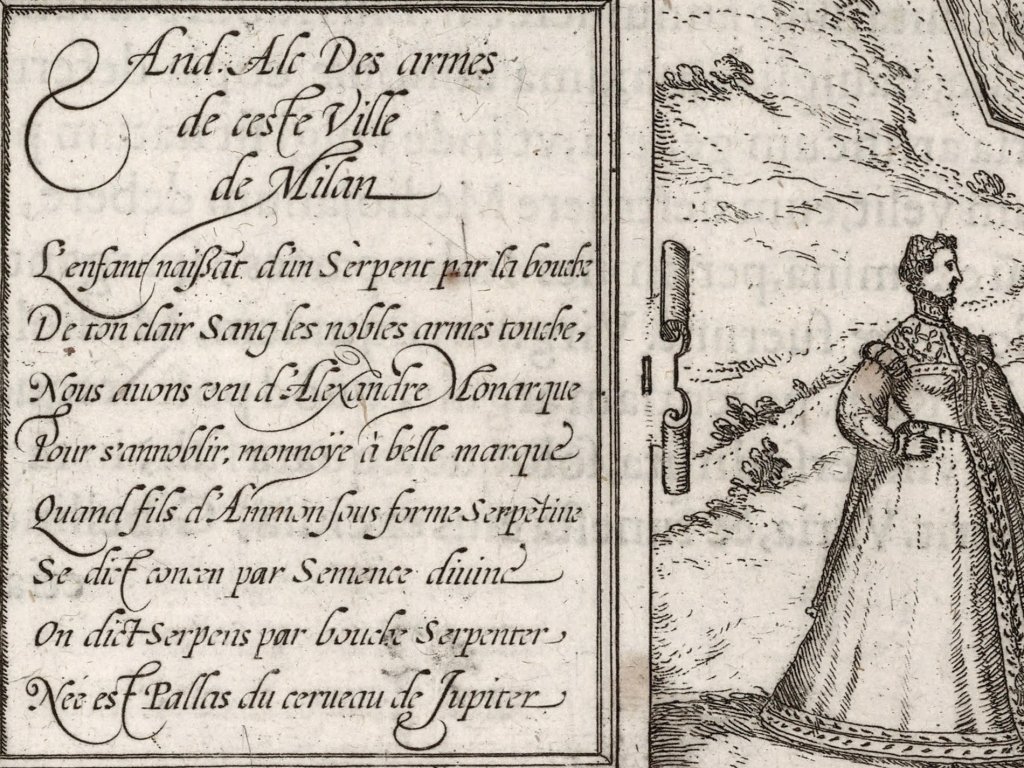 And. Alc Des armes
de ceste Ville
de Milan
L'enfant naißāt d'un Sèrpent par la bouche
De ton clair Sang les nobles armes touche,
Nous auons veu d'Alexandre Monarque
Pour s'annoblir, monnoÿe à bélle marque
Quand fils d'Ammon sous forme Serpētine
Se dict conceu par Semence diuine
On dict Serpens par bouche Serpenter
Neé est Pallas du cerueau de Jupiter